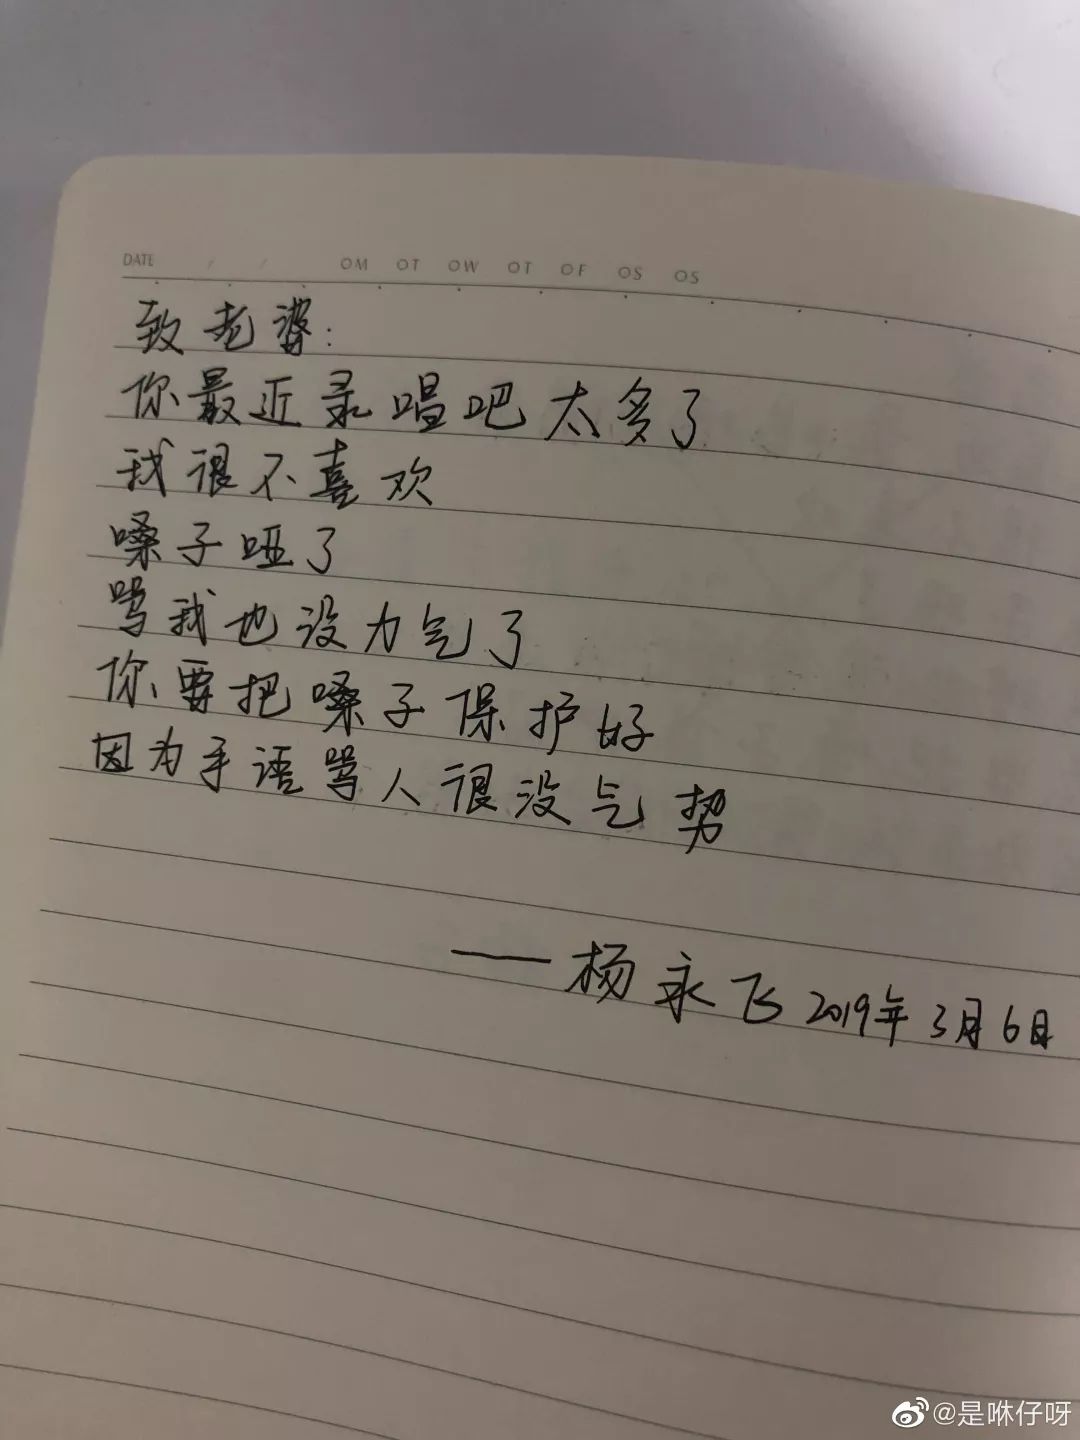 DATE / / OM OT OW OT OF OS OS
致老婆:
你最近录唱吧太多了
我很不喜欢
嗓子哑了
骂我也没力气了
你要把嗓子保护好
因为手语骂人很没气势
——杨永飞2019年3月6日
@是咻仔呀